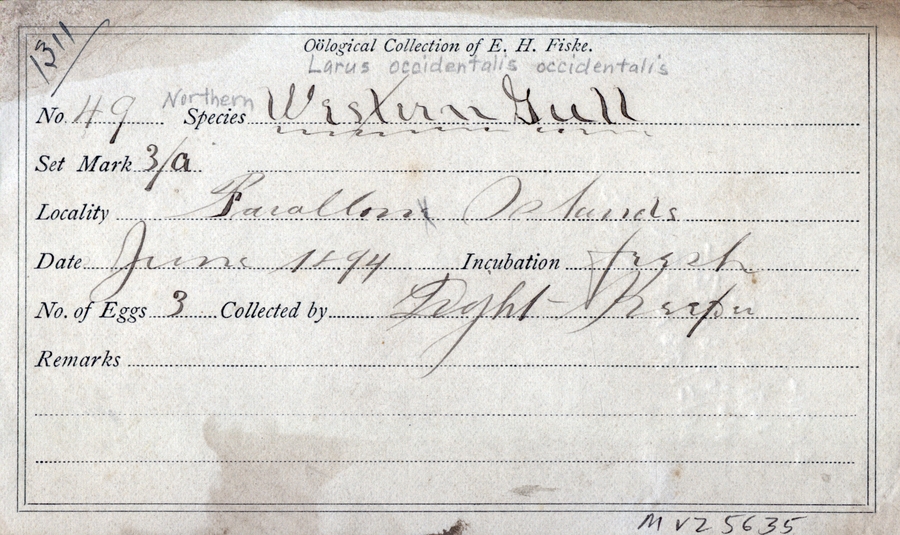 1311
Oölogical Collection of E. H. Fiske.
Larus occidentalis occidentalis
No. 49 Northern Species Western Gull
Set Mark 3/a
Locality Farallone Islands
Date June 1894 Incubation fresh
No. of Eggs 3 Collected by Light-Keeper
Remarks
MVZ 5635